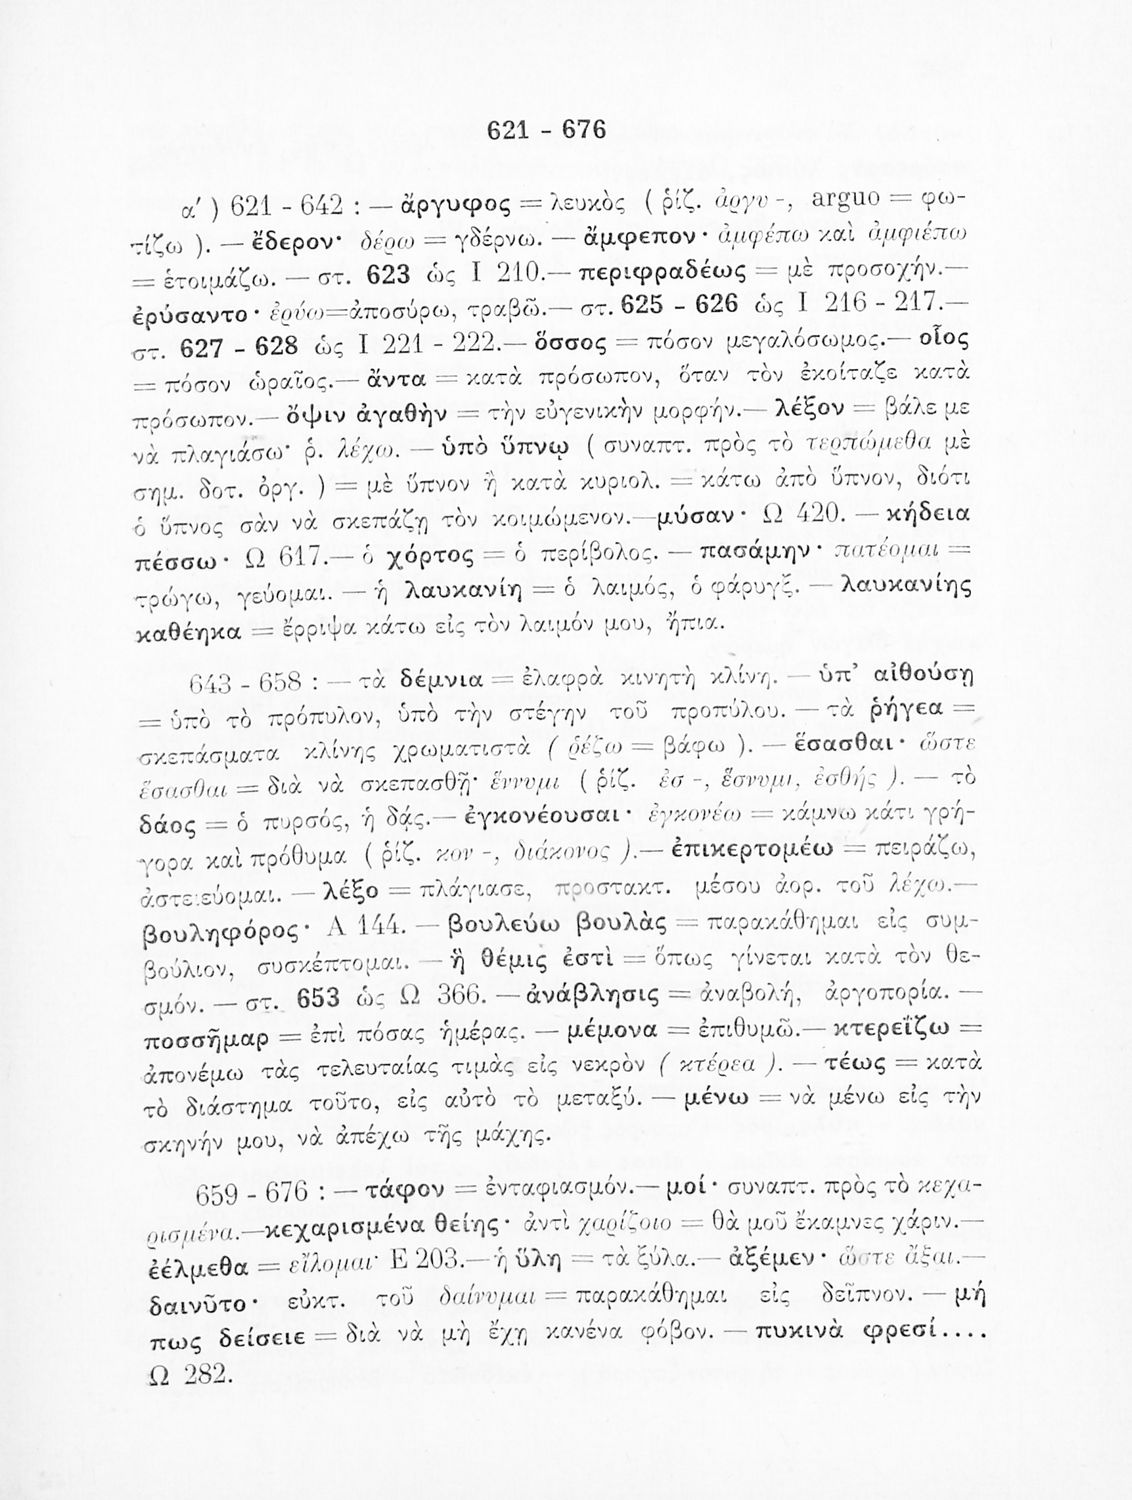 621 - 676
α΄ ) 621 - 642 : — ἄργυφος = λευκὸς ( ῥίζ. ἀργυ -, arguo = φω-
τίζω ). — ἔδερον· δέρω = γδέρνω. — ἄμφεπον· ἀμφέπω καὶ ἀμφιέπω
= ἑτοιμάζω. — στ. 623 ὡς Ι 210.— περιφραδέως = μὲ προσοχήν.—
ἐρύσαντο· ἐρύω=ἀποσύρω, τραβῶ.— στ. 625 - 626 ὡς Ι 216 - 217.—
στ. 627 - 628 ὡς Ι 221 - 222.— ὅσσος = πόσον μεγαλόσωμος.— οἷος
= πόσον ὡραῖος.— ἄντα = κατὰ πρόσωπον, ὅταν τὸν ἐκοίταζε κατὰ
πρόσωπον.— ὄψιν ἀγαθὴν = τὴν εὐγενικὴν μορφήν.— λέξον = βάλε με
νὰ πλαγιάσω· ῥ. λέχω. — ὑπὸ ὕπνῳ ( συναπτ. πρὸς τὸ τερπώμεθα μὲ
σημ. δοτ. ὀργ. ) = μὲ ὕπνον ἢ κατὰ κυριολ. = κάτω ἀπὸ ὕπνον, διότι
ὁ ὕπνος σὰν νὰ σκεπάζῃ τὸν κοιμώμενον.—μύσαν· Ω 420. — κήδεια
πέσσω· Ω 617.— ὁ χόρτος = ὁ περίβολος. — πασάμην· πατέομαι =
τρώγω, γεύομαι. — ἡ λαυκανίη = ὁ λαιμός, ὁ φάρυγξ. — λαυκανίης
καθέηκα = ἔρριψα κάτω εἰς τὸν λαιμόν μου, ἤπια.
643 - 658 : — τὰ δέμνια = ἐλαφρὰ κινητὴ κλίνη. — ὑπ’ αἰθούσῃ
= ὑπὸ τὸ πρόπυλον, ὑπὸ τὴν στέγην τοῦ προπύλου. — τὰ ῥήγεα =
σκεπάσματα κλίνης χρωματιστὰ ( ῥέζω = βάφω ). — ἕσασθαι· ὥστε
ἕσασθαι = διὰ νὰ σκεπασθῇ· ἕννυμι ( ῥίζ. ἐσ -, ἕσνυμι, ἐσθής ). — τὸ
δάος = ὁ πυρσός, ἡ δᾴς.— ἐγκονέουσαι· ἐγκονέω = κάμνω κάτι γρή-
γορα καὶ πρόθυμα ( ῥίζ. κον -, διάκονος ).— ἐπικερτομέω = πειράζω,
ἀστειεύομαι. — λέξο = πλάγιασε, προστακτ. μέσου ἀορ. τοῦ λέχω.—
βουληφόρος· Α 144. — βουλεύω βουλὰς = παρακάθημαι εἰς συμ-
βούλιον, συσκέπτομαι. — ἣ θέμις ἐστὶ = ὅπως γίνεται κατὰ τὸν θε-
σμόν. — στ. 653 ὡς Ω 366. — ἀνάβλησις = ἀναβολή, ἀργοπορία. —
ποσσῆμαρ = ἐπὶ πόσας ἡμέρας. — μέμονα = ἐπιθυμῶ.— κτερεΐζω =
ἀπονέμω τὰς τελευταίας τιμὰς εἰς νεκρὸν ( κτέρεα ). — τέως = κατὰ
τὸ διάστημα τοῦτο, εἰς αὐτὸ τὸ μεταξύ. — μένω = νὰ μένω εἰς τὴν
σκηνήν μου, νὰ ἀπέχω τῆς μάχης.
659 - 676 : — τάφον = ἐνταφιασμόν.— μοί· συναπτ. πρὸς τὸ κεχα-
ρισμένα.—κεχαρισμένα θείης· ἀντὶ χαρίζοιο = θὰ μοῦ ἔκαμνες χάριν.—
ἐέλμεθα = εἴλομαι· Ε 203.— ἡ ὕλη = τὰ ξύλα.— ἀξέμεν· ὥστε ἄξαι.—
δαινῦτο· εὐκτ. τοῦ δαίνυμαι = παρακάθημαι εἰς δεῖπνον. — μή
πως δείσειε = διὰ νὰ μὴ ἔχῃ κανένα φόβον. — πυκινὰ φρεσί....
Ω 282.